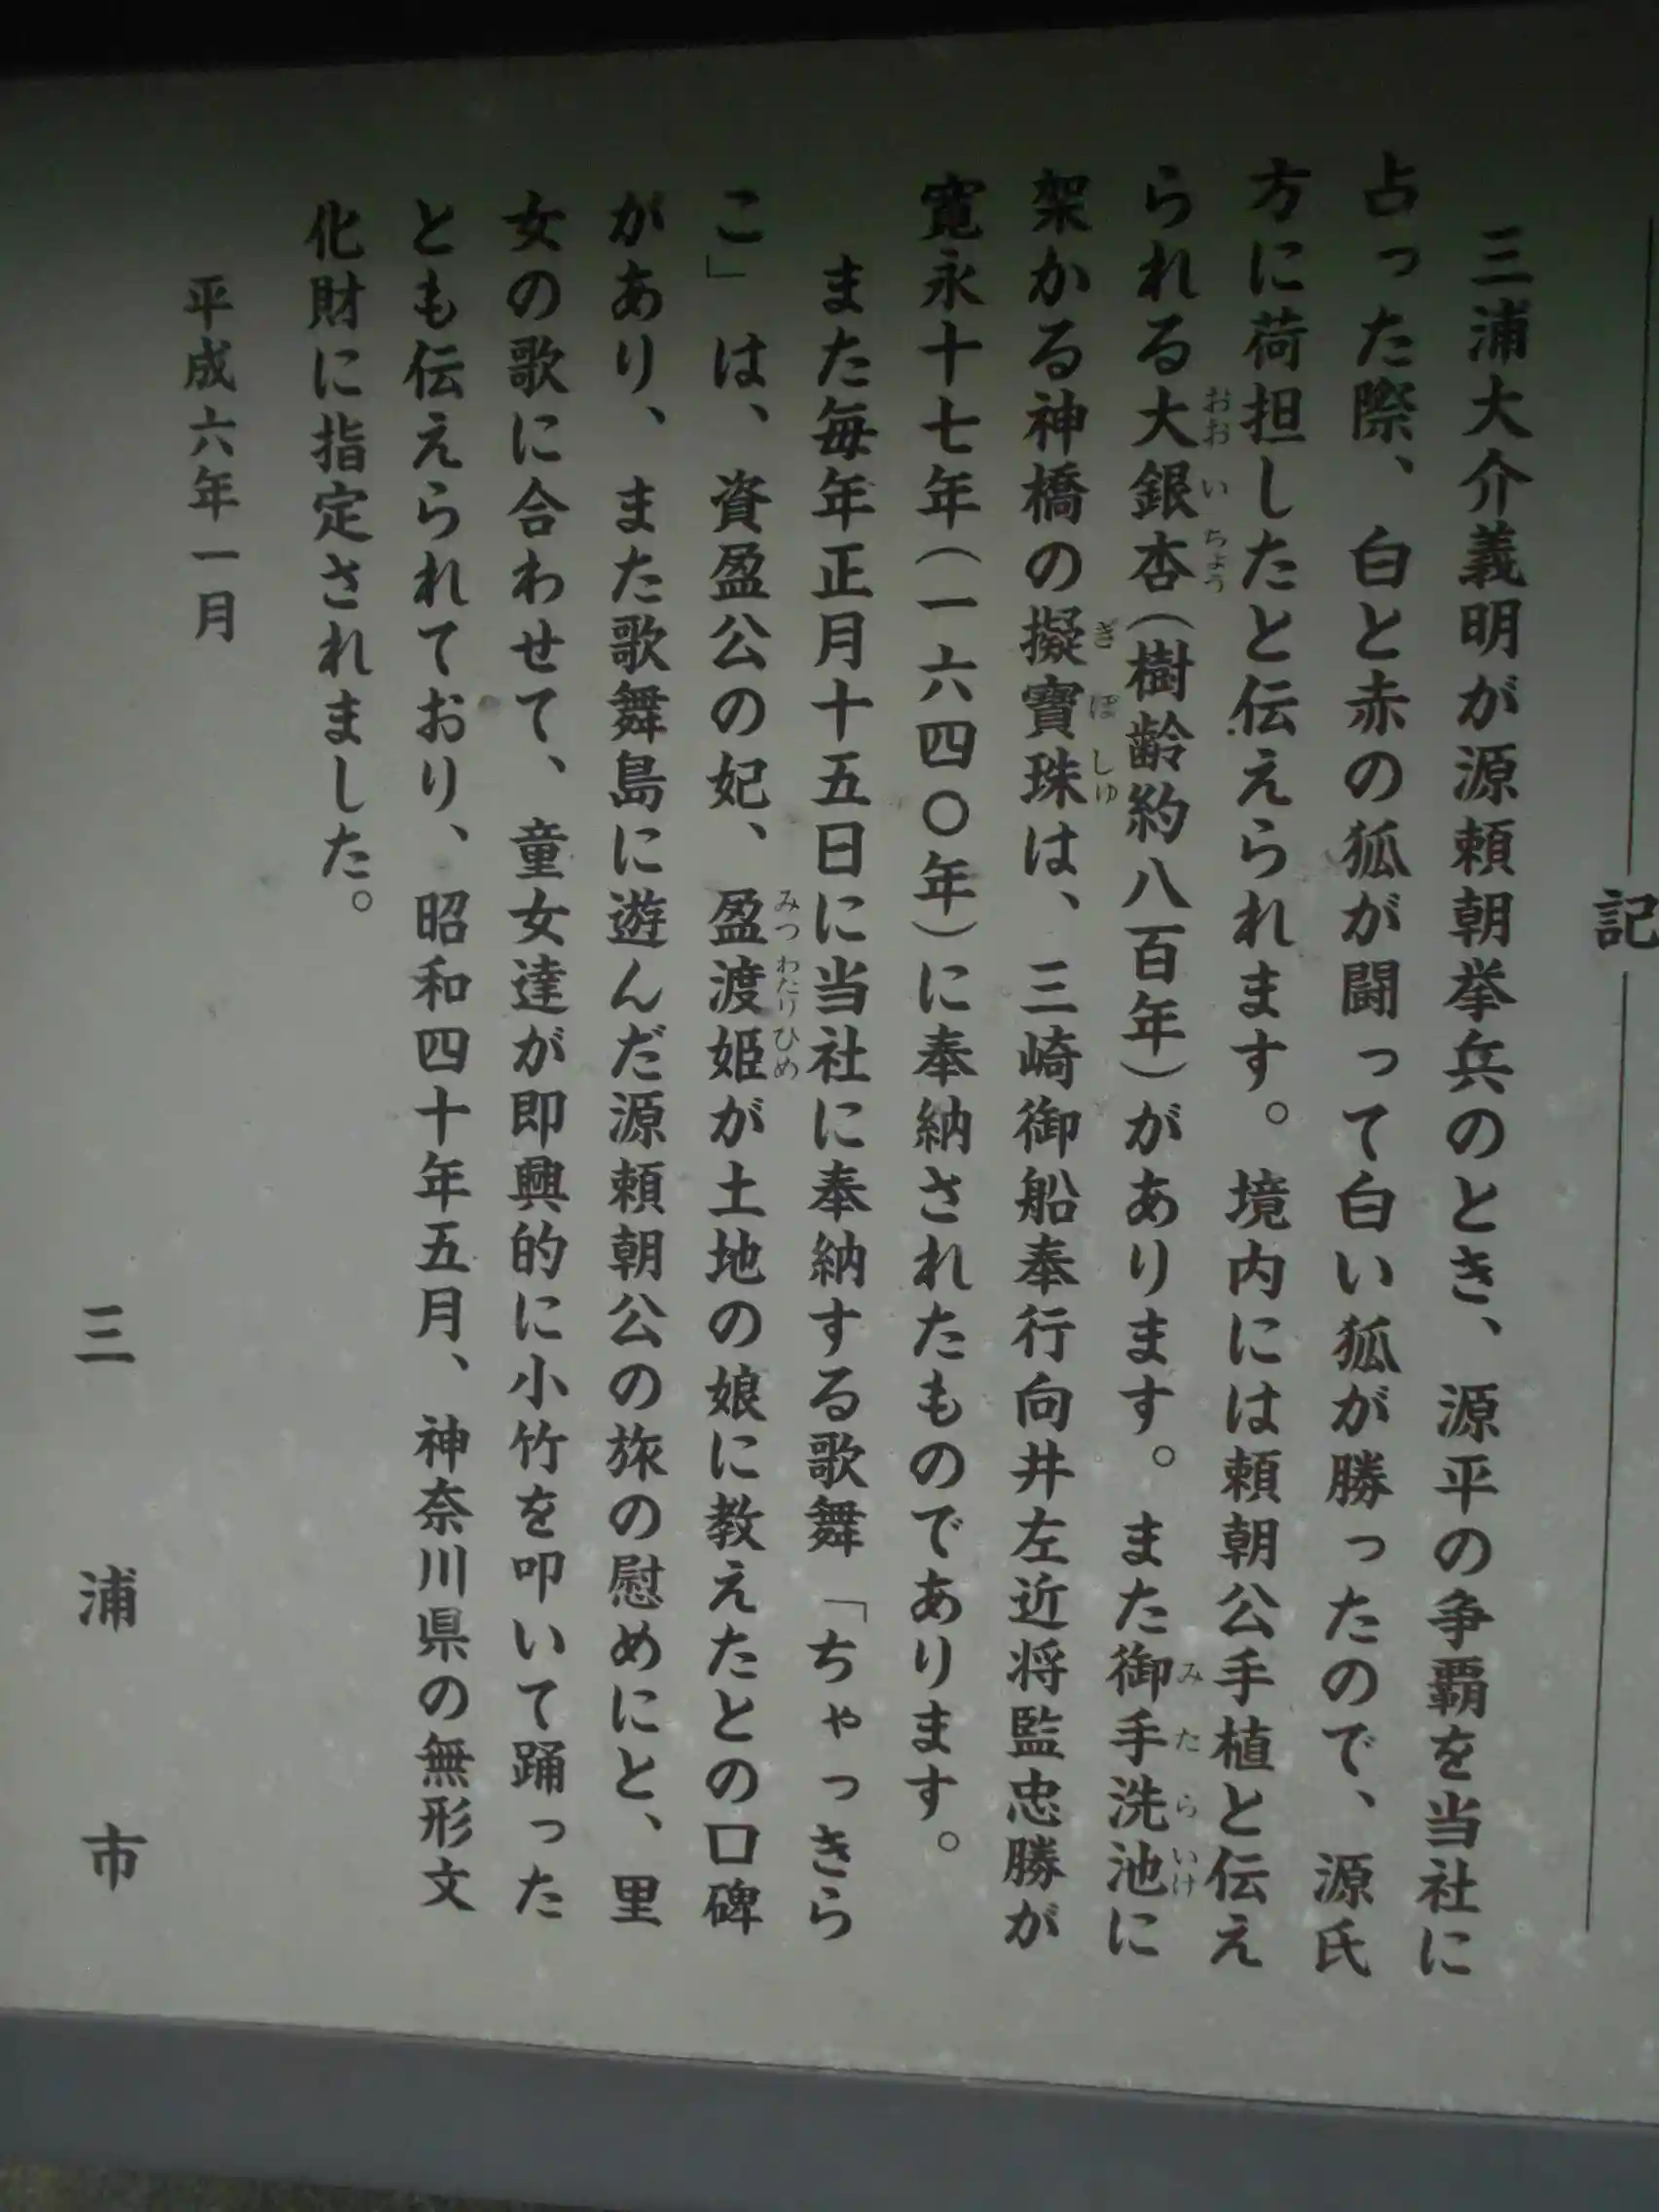 記
三浦大介義明が源頼朝挙兵のとき、源平の争覇を当社に
占った際、白と赤の狐が闘って白い狐が勝ったので、源氏
方に荷担したと伝えられます。境内には頼朝公手植と伝え
られる大銀杏(樹齢約八百年)があります。また御手洗池に
おおいちょう
みたらいけ
架かる神橋の擬寶珠は、三崎御船奉行向井左近将監忠勝が
ぎぼしゆ
寛永十七年(一六四〇年)に奉納されたものであります。
また毎年正月十五日に当社に奉納する歌舞「ちゃっきら
こ」は、資盈公の妃、盈渡姫が土地の娘に教えたとの口碑
みつわたりひめ
があり、また歌舞島に遊んだ源頼朝公の旅の慰めにと、里
女の歌に合わせて、童女達が即興的に小竹を叩いて踊った
とも伝えられており、昭和四十年五月、神奈川県の無形文
化財に指定されました。
平成六年一月
三浦市